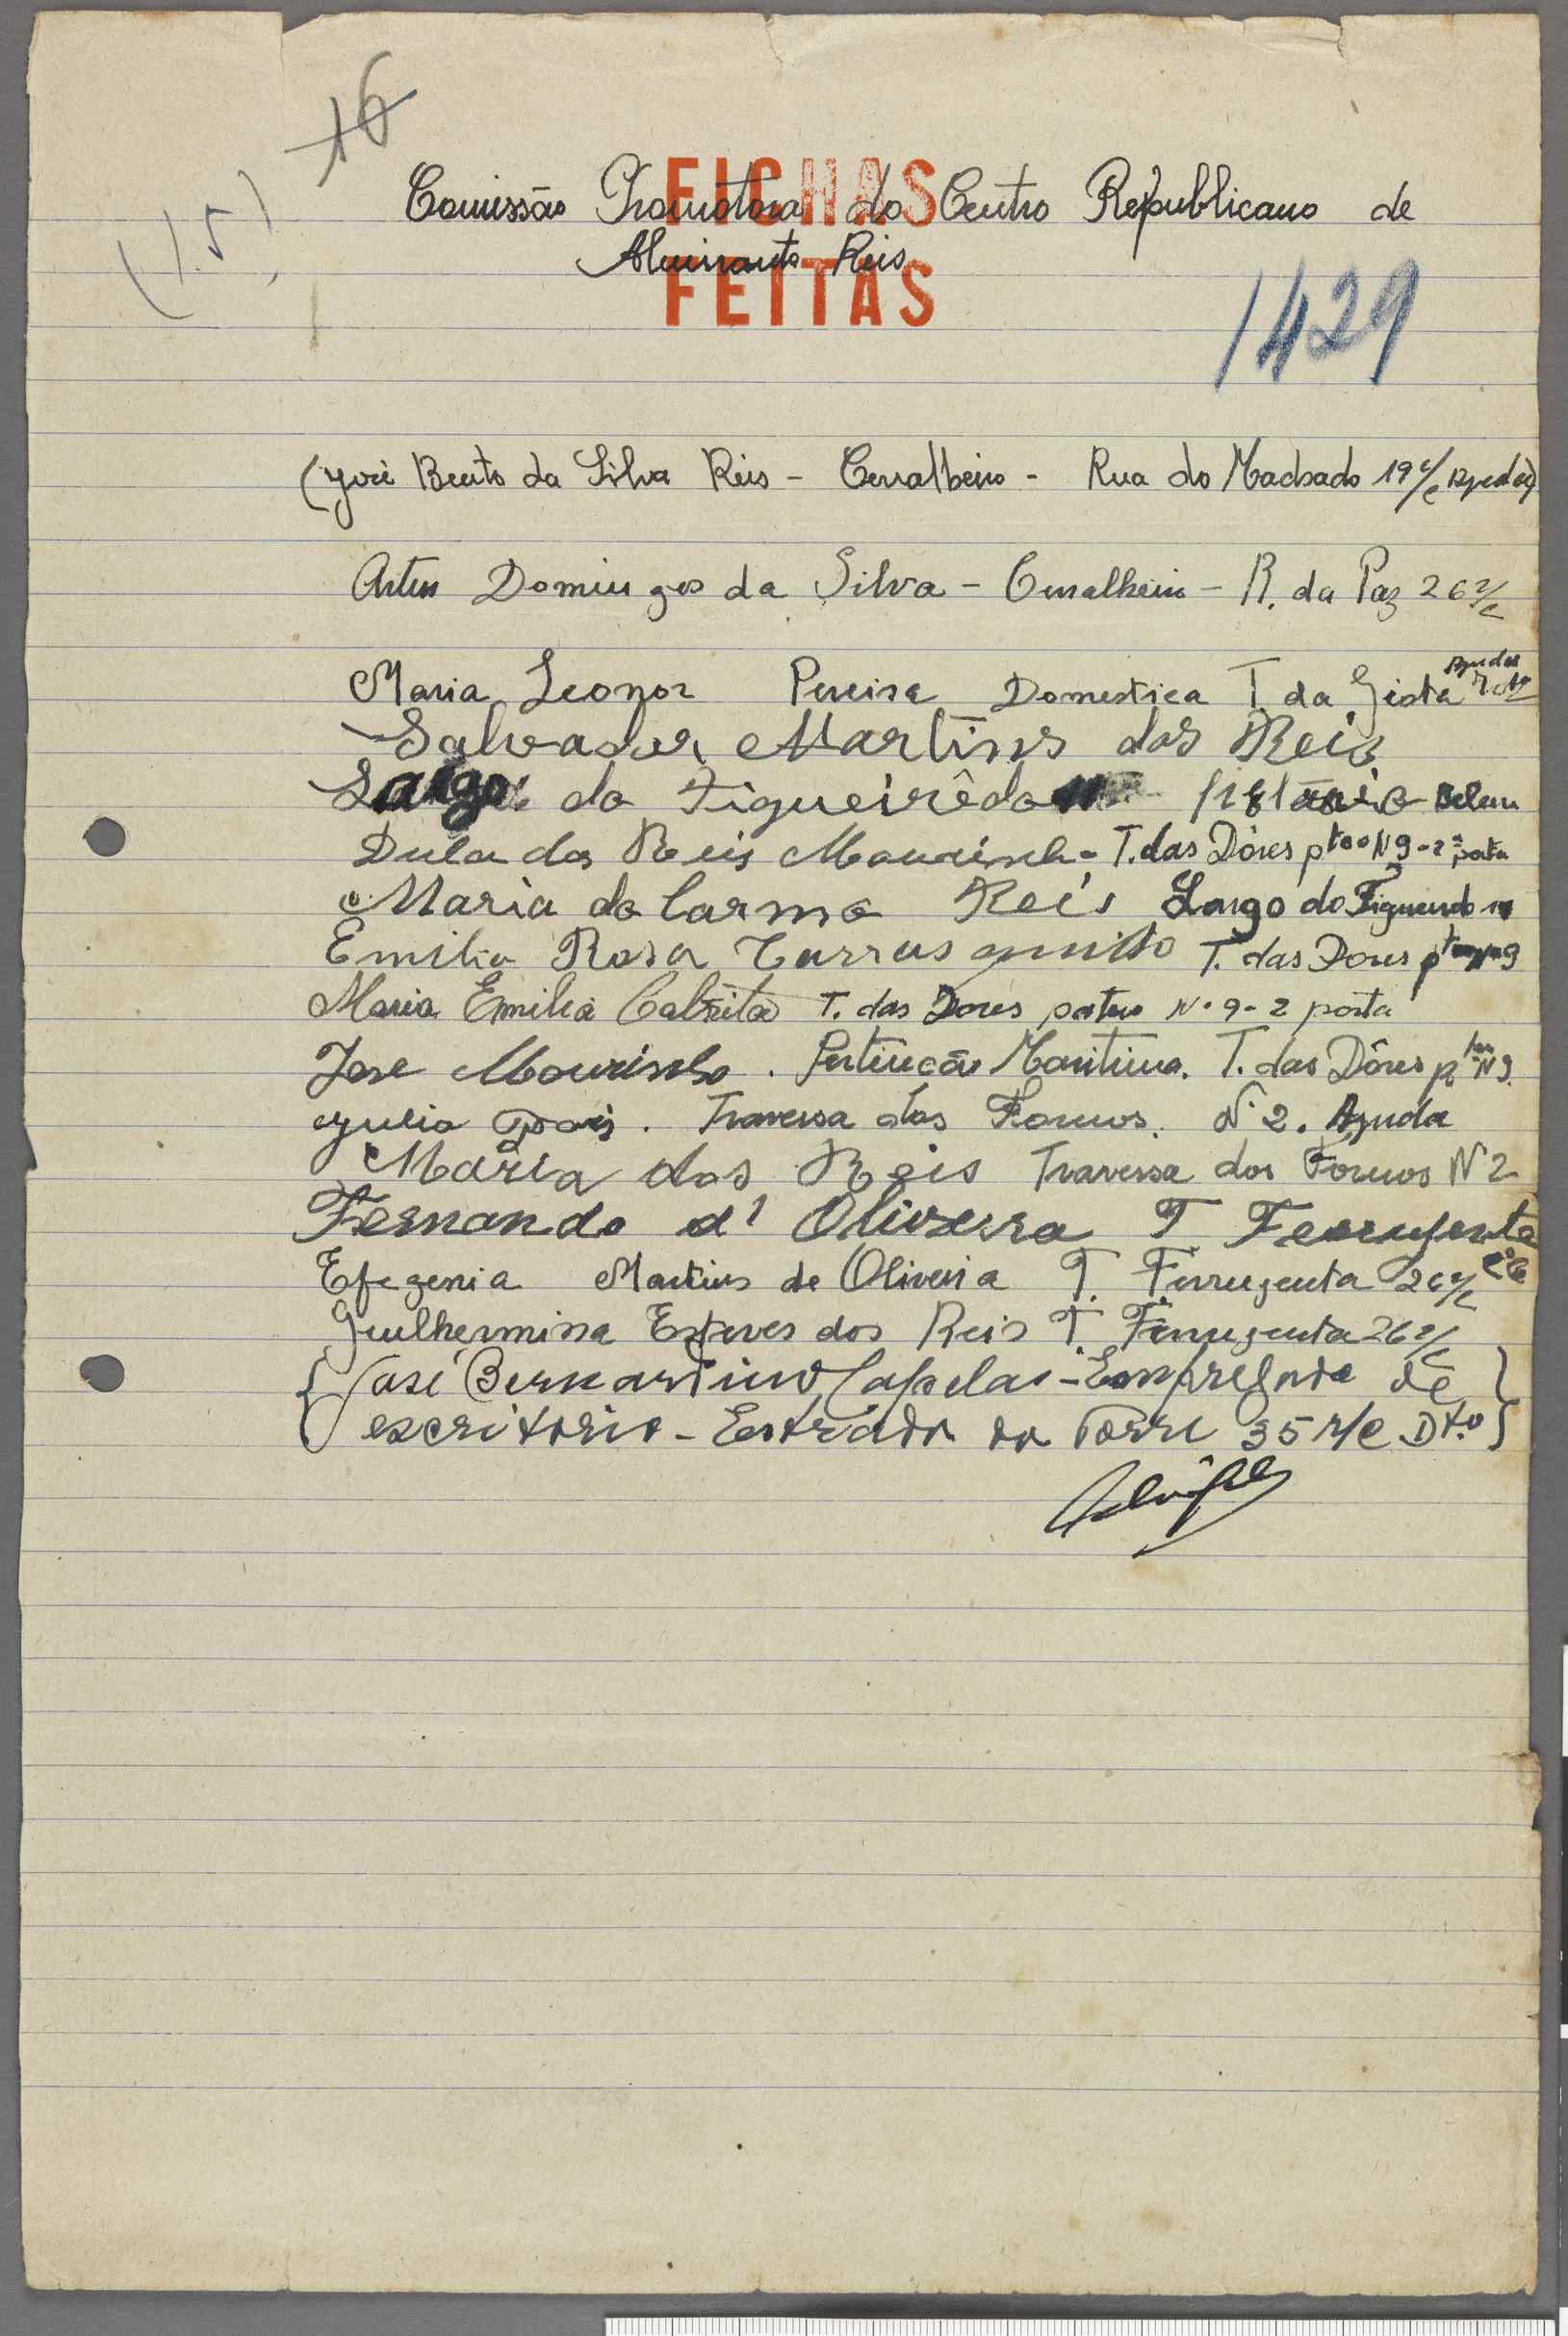 16
(15)
FICHAS
Comissão Promotora do Centro Republicano de
Almirante Reis
FEITAS
1429
(José Bento da Silva Reis - Cerralheiro - Rua do Machado 19 r/c Ajuda)
Artur Domingos da Silva - Cerralheiro - R. da Paz 26 r/c
Ajuda
Maria Leonor Pereira Domestica T. da Giesta
Salvador Martins dos Reis
Largo do Figueirêdo Belem
Dulce dos Reis Mourinho - T. das Dôres pteo N 9 - 2ª porta
Maria do Carmo Reis Largo do Figueiredo
Emilia Rosa T. das Dores pteo Nº 9
Maria Emilia Cabrita T. das Dores pateo Nº 9 - 2 porta
Jose Mourinho. Maritima. T. das Dôres pteo Nº 9.
Julio Travessa dos Fornos. Nº 2. Ajuda
Maria dos Reis Travessa dos Fornos Nº 2
Fernando d' Oliveira T Ferrugenta
Efegenia Martins de Oliveira T. Ferrugenta 26 r/c
Guilhermina Esteves dos Reis T. Ferrugenta 26 r/c
{ José Bernardino Capelas - Empregado de }
escritorio - Estrada da Torre 35 r/c Dto